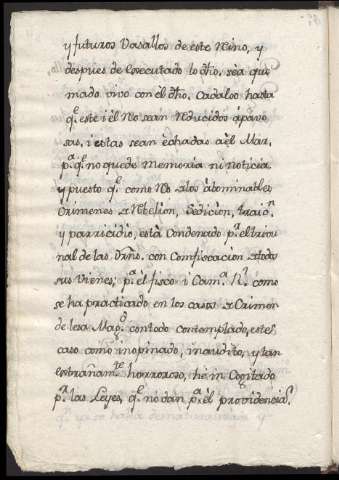 y futuros Vasallos de este Reino, y
despues de executado lo dho, sea que
mado vivo con el dho. Cadalso hasta
q.e este i èl Rò sean reducidos à pave
sas, i estas sean echadas aèl Mar,
p.a q.e no quede memoria ni noticia
y puesto q.e como Rò de los àbominables
Crimenes de Rebelion, Sedicion, traic.n
y parricidio, està Condenado p.r el tribu
nal de las Drño. con Confiscacion de todos
sus Vienes; p.a èl fisco i Cam.a R.l como
se ha practicado en los casos de Crimen
de lesa Mag.d con todo contemplado, este
caso como inopinado, inaudito, y tan
extrañam.te horroroso, hè in Cogitado
p.a las Leyes, q.e no dan p.a èl providencia,